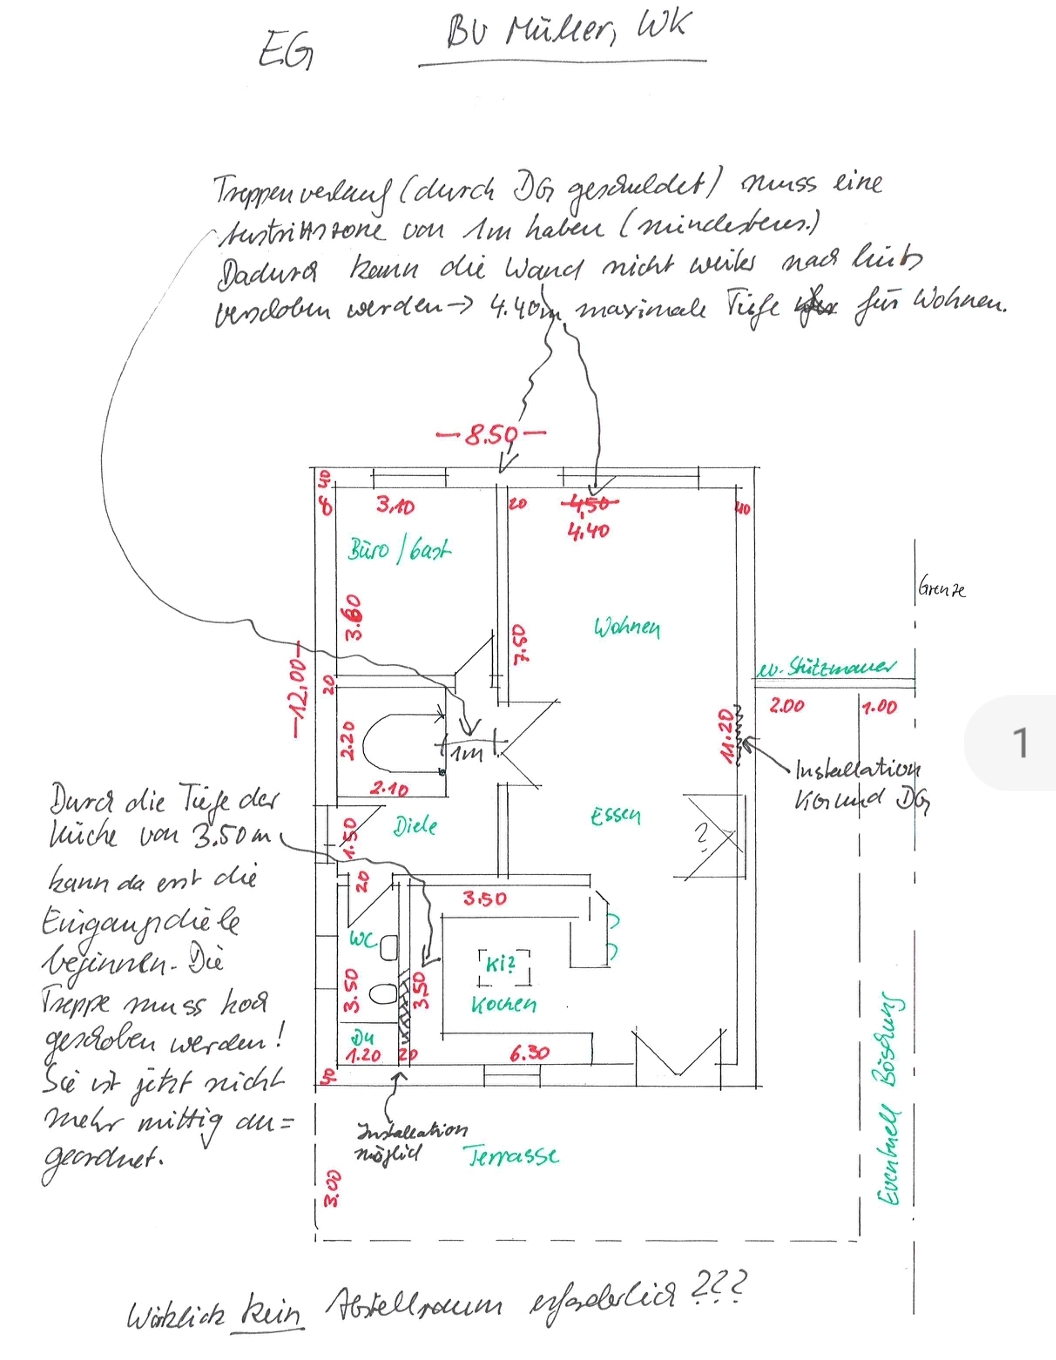 EG
BV Müller, WK
Treppenverlauf (durch DG geschuldet) muss eine
Austrittszone von 1m haben (mindestens.)
Dadurch kann die Wand nicht weiter nach links
verschoben werden → 4.40m maximale Tiefe für Wohnen.
— 8.50 —
40
3,10
20
4,50
40
4.40
Büro / Gast
Grenze
3.60
Wohnen
7.50
—12.00—
20
Stützmauer
2.00
1.00
2.20
1m
11.20
2.10
Installation
KG und DG
Durch die Tiefe der
Küche von 3.50m
kann da erst die
Eingangsdiele
beginnen. Die
Treppe muss hoch
geschoben werden!
Sie ist jetzt nicht
mehr mittig an=
geordnet.
1.50
Diele
Essen
?
20
3.50
WC
Ki?
3.50
3.50
Kochen
Du
1.20
20
6.30
40
Installation
möglich
Terrasse
3.00
Eventuell Böschung
Wirklich kein Abstellraum erforderlich ???
1